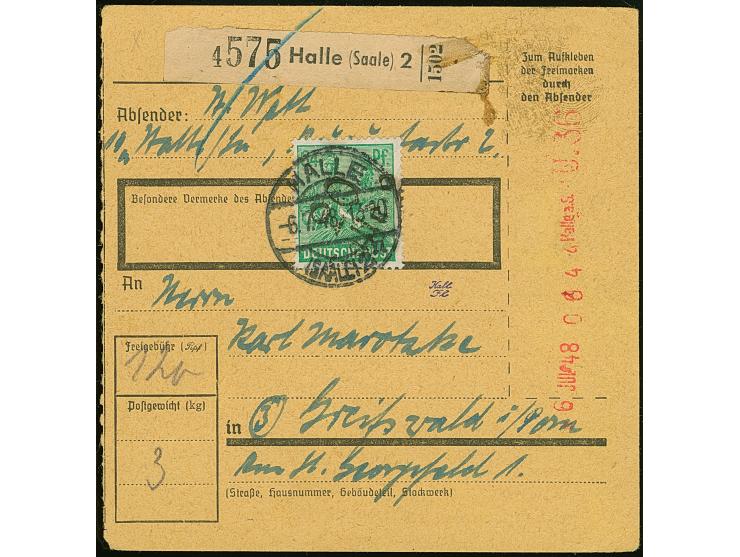 4575 Halle (Saale) 2
1502
Zum Aufkleben
der Freimarken
durch
den Absender
Absender:
Besondere Vermerke des Absenders
84 Pf
HALLE
6.7.48
(SAALE) 2
DEUTSCHE POST
An Herrn
Karl Marotzke
in Greifswald i/Pom
Am St. Georgsfeld 1.
(Straße, Hausnummer, Gebäudeteil, Stockwerk)
Freigebühr (Rpf)
120
Postgewicht (kg)
3
6 JUL 48 0 6 4 4 Halle a.S. 0.36